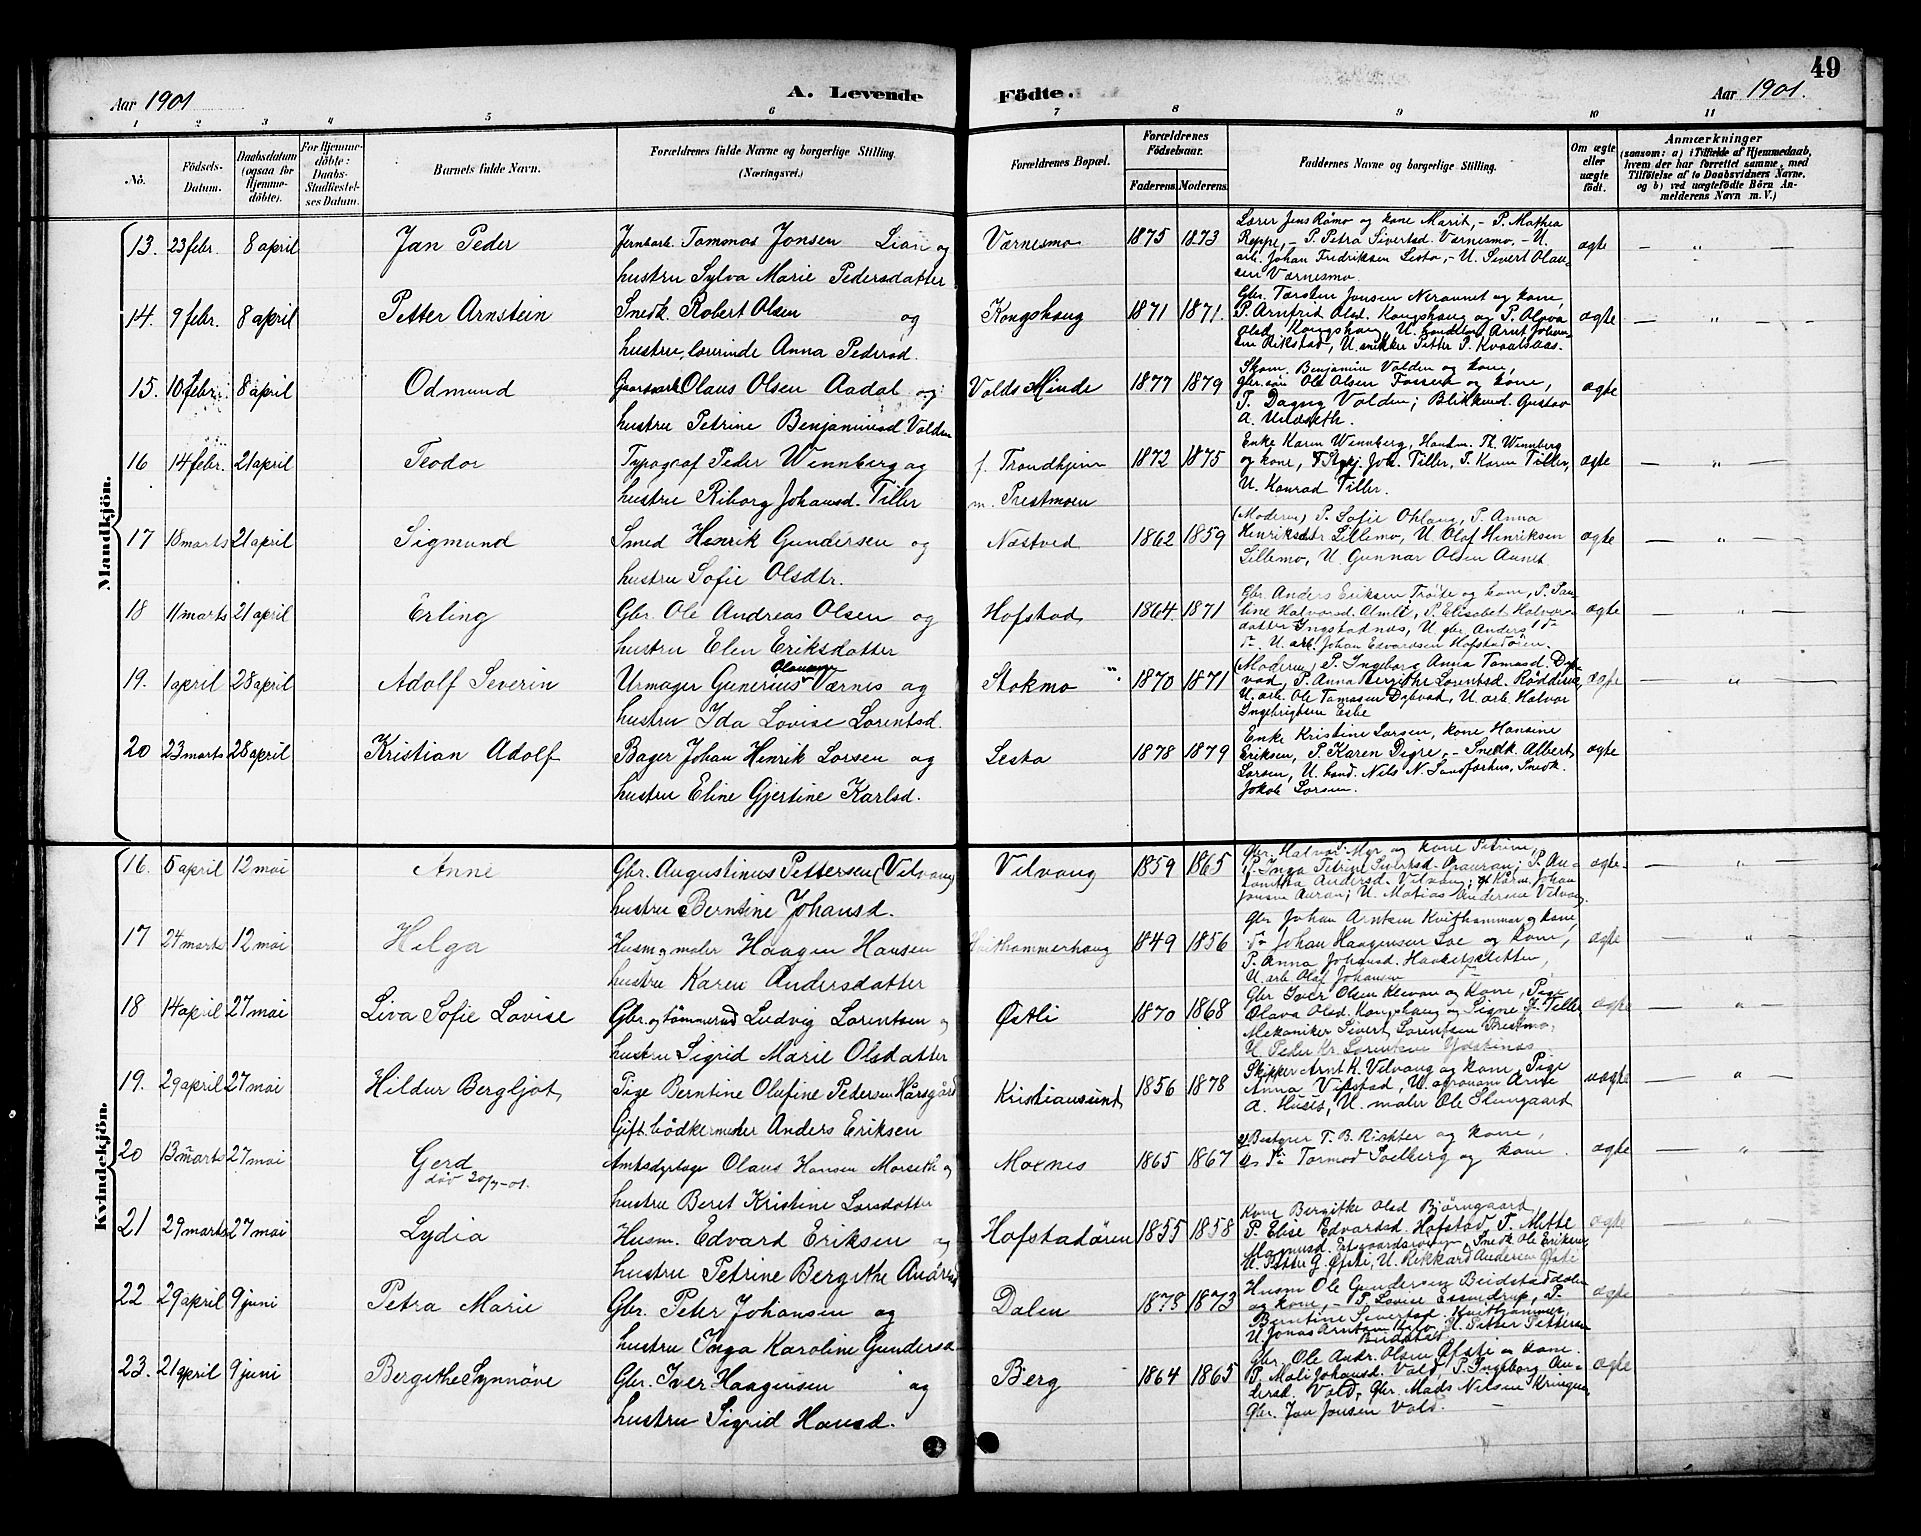 49
Aar 1901
A. Levende
Födte.
Aar 1901.
1 2 3 4 5 6 7 8 9 10 11
No.
Födsels-
Datum.
Daabsdatum
(ogsaa for
Hjemme-
döbte).
For Hjemme-
döbte:
Daabs-
Stadfæstel-
ses Datum.
Barnets fulde Navn.
Forældrenes fulde Navne og borgerlige Stilling.
(Næringsvei.)
Forældrenes Bopæl.
Forældrenes
Födselsaar.
Faderens.
Moderens.
Faddernes Navne og borgerlige Stilling.
Om ægte
eller
uægte
født.
Anmærkninger
(saasom: a) i Tilfælde af Hjemmedaab,
hvem der har forrettet samme, med
Tilföielse af to Daabsvidners Navne,
og b) ved uægtefödte Börn An-
melderens Navn m.V.)
Mandkjön.
13. 23 febr. 8 april Jan Peder
Jernbarb. Tomonas Jonsen Lian og
hustru Sylva Marie Pedersdatter
Værnesmo 1875 1873
Lærer Jens Rømo og kone Marit, - P. Mathea
Reppe, - P. Petra Sivertsd. Værnesmo, - U.
arb. Johan Fredriksen Lesta, - U. Sivert Olau-
sen Værnesmo.
ægte — „ —
14. 9 febr. 8 april Petter Arnstein
Snedk. Robert Olsen og
hustru, lærerinde Anna Pedersd.
Kongshaug 1871 1871.
Gbr. Torsten Jonsen Neraunet og kone,
P. Arnfrid Olsd. Kongshaug og P. Olava
Olsd. Kongshaug, U. Arnt Johan-
sen Rikstad, U. snekker Petter P. Kvaalsaas.
ægte — „ —
15. 10 febr. 8 april Odmund
Gaardarb. Olaus Olsen Aadal og
hustru Petrine Benjaminsd. Valden
Volds Minde 1877 1879
Skom. Benjamin Valden og kone,
Gbr. søn Ole Olsen Fossen og kone,
P. Dagny Valden; Blikkensl. Gustav
A.
ægte
16 14 febr. 21 april Teodor
Typograf Peder Wennberg og
hustru Riborg Johansd. Tiller
f. Trondhjem
m. Prestmoen
1872 1875
Enke Karen Wennberg, Handm. Th. Wennberg
og kone, Joh. Tiller, P. Karen Tiller,
U. Konrad Tiller.
ægte — „ —
17 18 marts 21 april Sigmund
Smed Henrik Gundersen og
hustru Sofie Olsdtr.
Næstved 1862 1859
(Moderen) P. Sofie Ohlaug, P. Anna
Henriksdtr Lillemo, U Olaf Henriksen
Lillemo, U. Gunnar Olsen Aunet
ægte — „ —
18 11 marts 21 april Erling
Gbr. Ole Andreas Olsen og
hustru Elen Eriksdatter
Hofstad 1864 1871
Gbr. Anders Eriksen Trøite og kone, P. Pau-
line Halvorsd. Almli, P. Elisabet Halvors-
datter Ingstadnæs, U. gbr. Anders do
do U. arb. Johan Edvardsen Hofstadören.
ægte — „ —
19. 1 april 28 april Adolf Severin
Urmager Gunerius Olausen Værnes og
hustru Ida Lovise Lorentsd.
Stokmo 1870 1871
(Moderen) P. Ingeborg Anna Tomasd. Dyb-
vad, P. Anna Bergithe Lorentsd. Röddesva,
U. arb. Ole Tomasen Dybvad, U. arb Halvor
Ingebrigtsen Eslie
ægte — „ —
20 23 marts 28 april Kristian Adolf
Bager Johan Henrik Larsen og
hustru Eline Gjertine Karlsd.
Lesta 1878 1879
Enke Kristine Larsen, kone Hansine
Eriksen, P. Karen Digre, - Snedk. Albert
Larsen, U. Nils N. Sandfærhus, Snedk.
Jakob Larsen.
ægte — „ —
Kvindekjön.
16. 5 april 12 mai Anne
Gbr. Augustinus Pettersen (Vilvang)
hustru Berntine Johansd.
Vilvang 1859 1865
Gbr. Halvor Myr og kone Petrine,
P. Inga Petrine Sivertsd. P. An-
Andersd. Vilvang; Johan
Jonsen Auran; U. Matias Andersen Vilvang.
ægte — „ —
17 24 marts 12 mai Helga
Husm. og maler Haagen Hansen
hustru Karen Andersdatter
Kvithammerhaug 1849 1856
Gbr Johan Arntsen Kvithammer og kone,
do Johan Haagensen Loe og kone,
P. Anna Johansd. Haakerslettten,
U. arb. Olaf Johansen
ægte — „ —
18 14 april 27 mai Liva Sofie Lovise
Gbr. og tömmermd Ludvig Lorentsen og
hustru Sigrid Marie Olsdatter
Østli 1870 1868
Gbr Iver Olsen Klevan og kone, Pige
Olava Olsd. Kongshaug og Signe J. Teller
Mekaniker Sivert Lorentsen Prestmo,
U. Peder Kr. Lorentsen Ydstines.
ægte — „ —
19. 29 april 27 mai Hildur Bergljot
Pige Berntine Olufine Pedersen Hårsgård
Gift bödkermester Anders Eriksen
Kristiansund 1856 1878
Skipper Arnt K. Vilvang og kone, Pige
Anna Vikstad, U. agronom Arne
A. Husis, U. maler Ole Slungaard
uægte — „ —
20 13 marts 27 mai Gerd
döv 20/7-01.
Amtsdyrlæge Olaus Hansen Morseth og
hustru Beret Kristine Larsdatter
Moxnes 1865 1867
Bestyrer T. B. Richter og kone,
do Tormod Solberg og kone.
ægte — „ —
21 29 marts 27 mai Lydia
Husm. Edvard Eriksen og
hustru Petrine Bergithe Andersd
Hofstadören 1855 1858
Kone Bergitke Olsd Björngaard,
P. Elise Edvardsd. Hofstad, P. Mette
Magnusd. Snedk Ole Eriksen,
U. Petter G. Øfsti, U. Rikkard Andersen Øfsti
ægte
22 29 april 9 juni Petra Marie
Gbr. Peter Johansen og
hustru Inga Karoline Gundersd.
Dalen 1875 1873
Husm Ole Gundersen Beidstaddalen
og kone, - P. Lovise Essendrup, P.
Berntine Sivertsd. Kvithammer,
U. Jonas Arntsen U. Petter Petersen
ægte
23. 21 april 9 juni Bergithe Synnöve
Gbr. Iver Haagensen og
hustru Sigrid Hansd.
Berg 1864 1865
Gbr. Ole Andr. Olsen Øfsti og kone.
P. Mali Johansd. Vold, P. Ingeborg An-
dersd. Vold, Gbr. Mads Nilsen Kringen,
Gbr. Jon Jonsen Vold.
ægte